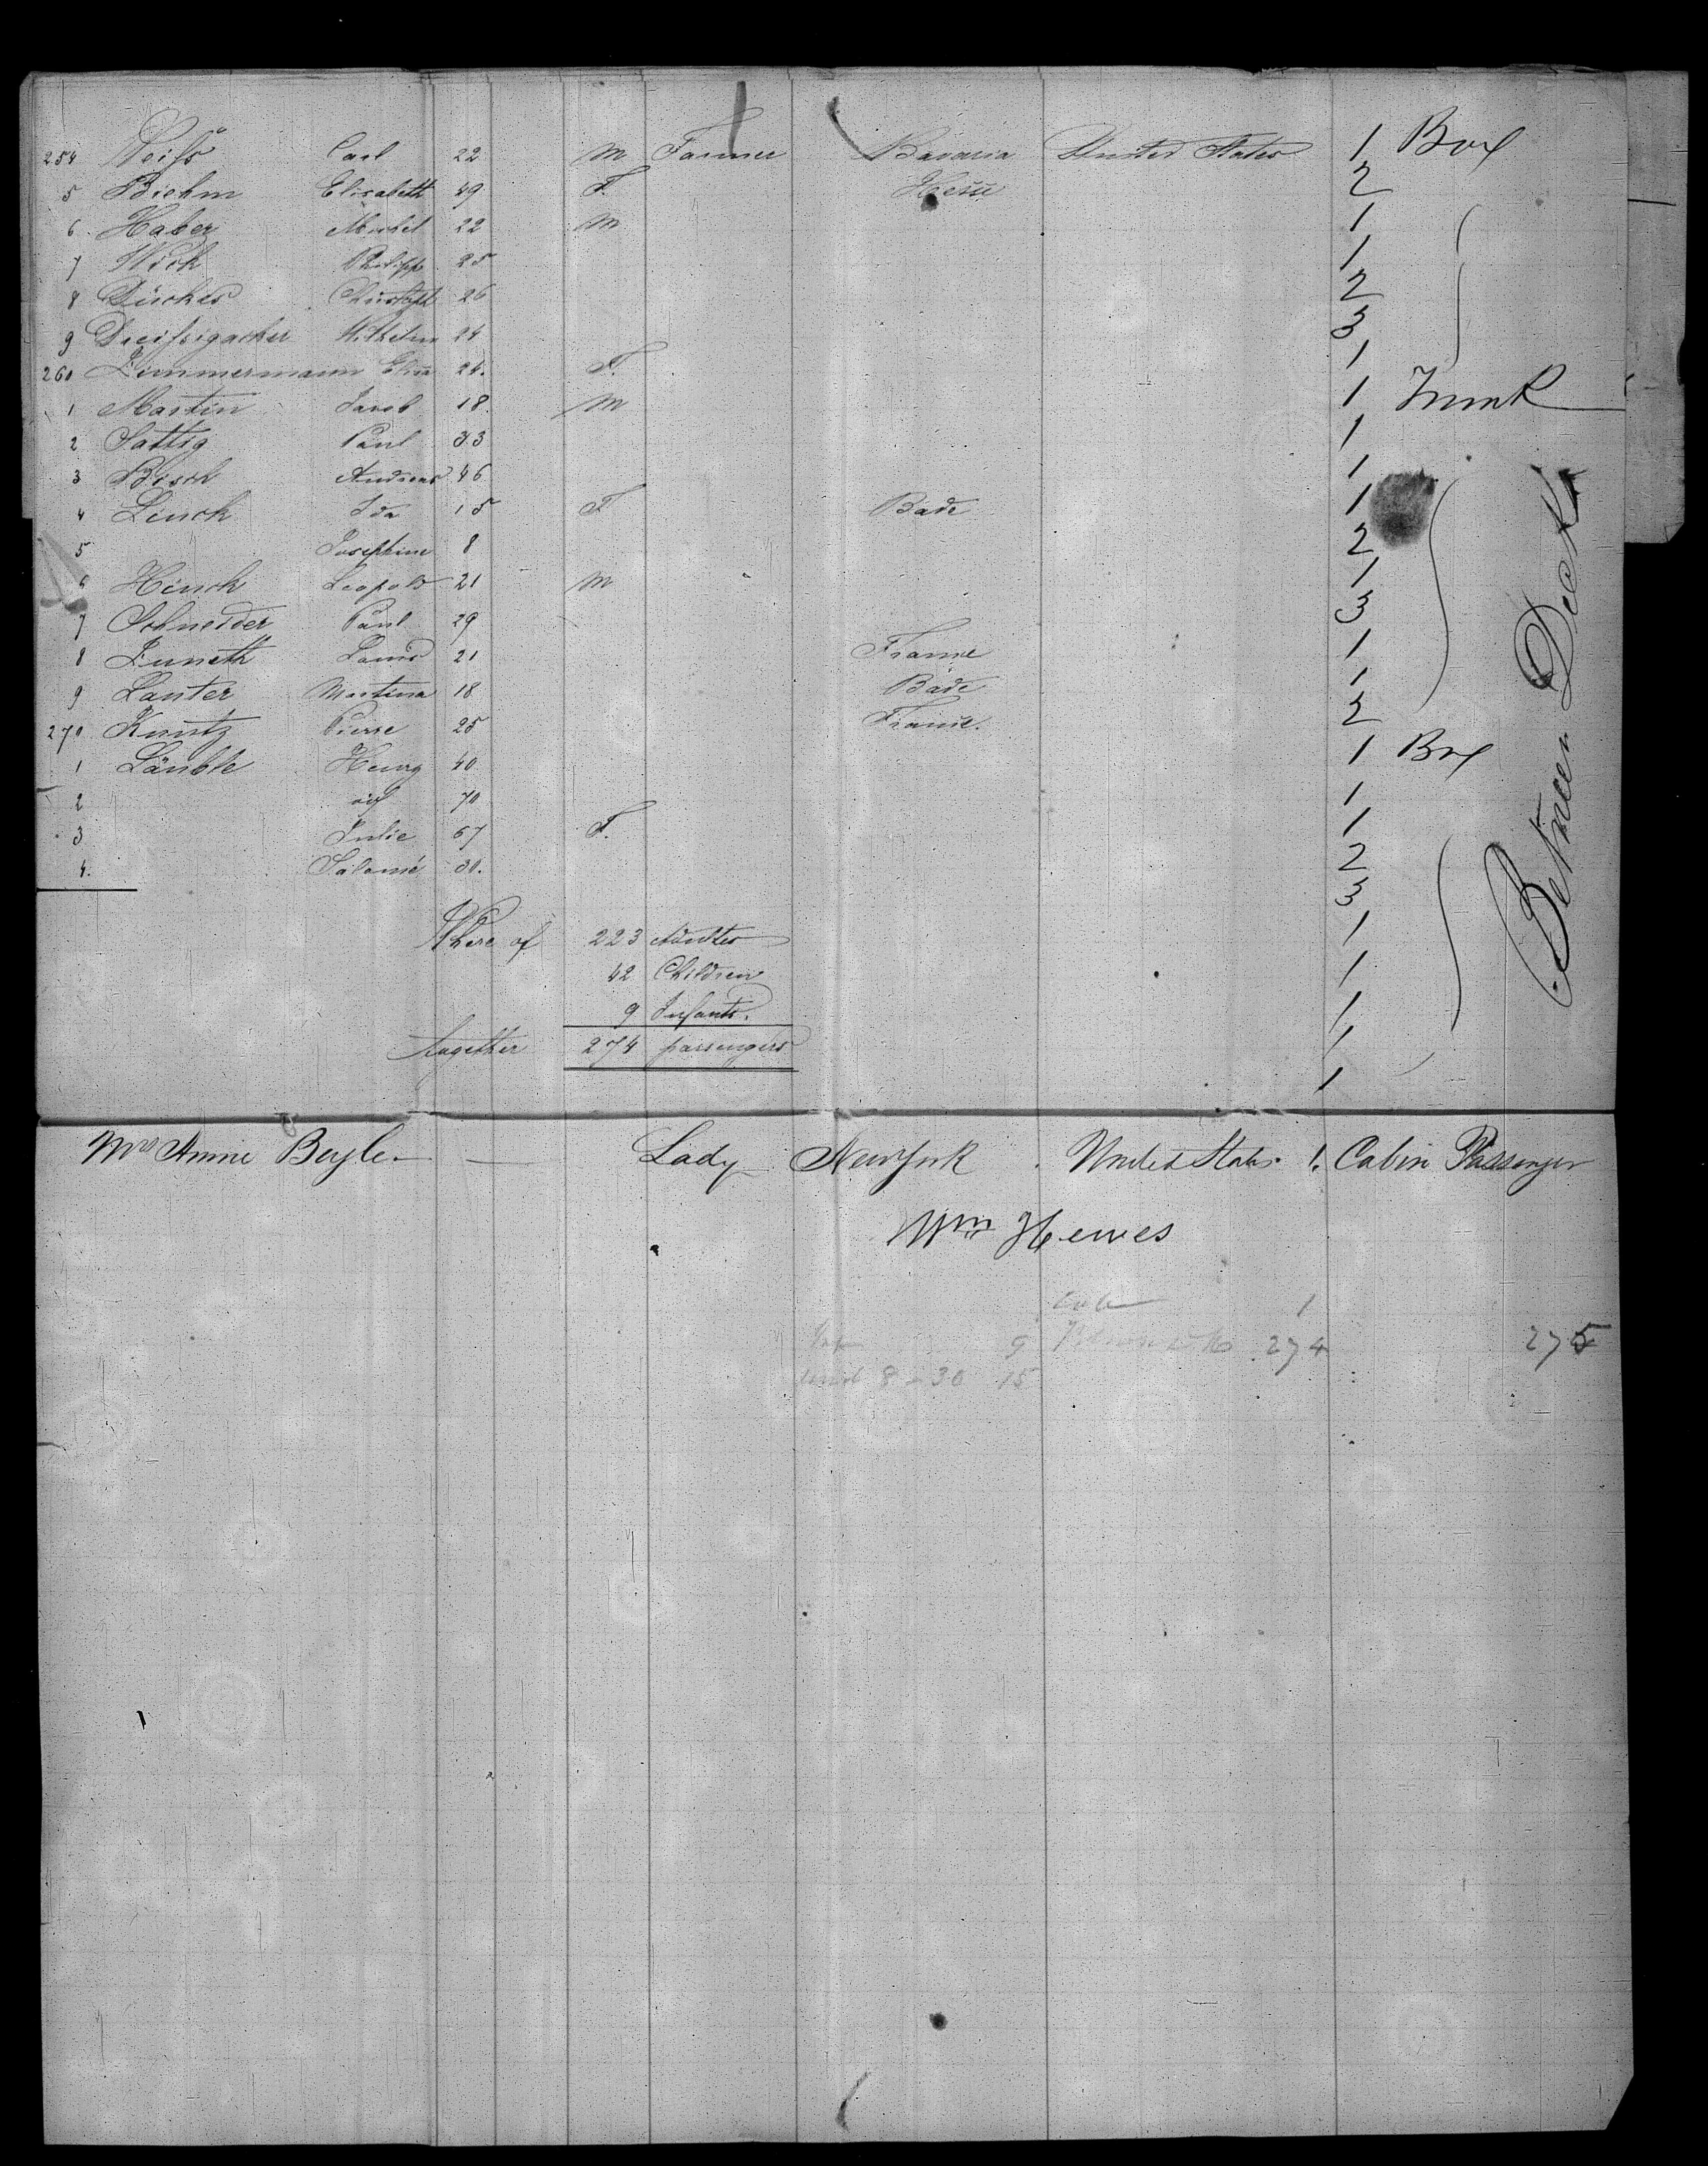 254 Weiſs Carl 22 M Farmer Bavaria United States 1 Box
5 Biehm Elisabeth 49 F. Hesse 2
6 Haber Michel 22 M 1
7 Wick Philipp 25 1
8 Christoph 26 2
9 Dreiſsigacker Wilhelm 24 3
260 Zimmermann Elise 24. F. 1
1 Martin Jacob 18. M 1 Trunk
2 Sattig Paul 33 1
3 Bisch Andreas 46 1
4 Linck Ida 15 F Bade 1
5 Josephine 8 2
6 Hinck Leopold 21 M 1
7 Schneider Paul 29 3
8 Zuneth Louis 21 France 1
9 Lanter Martina 18 Bade 1
270 Kuntz Pierre 25 France. 2
1 Läuble Henry 40 1 Box
2 id 70 1
3 Julie 67 F. 1
4. Salomé 30. 2
3
Where of 223 Adultes 1
42 Children 1
9 Infants. 1
together 274 passengers 1
1
Between Deck
Mrs Annie Boyle Lady New York United States 1. Cabin Passenger
Wm Hewes
Cab 1
9 274 275
8 - 30 15